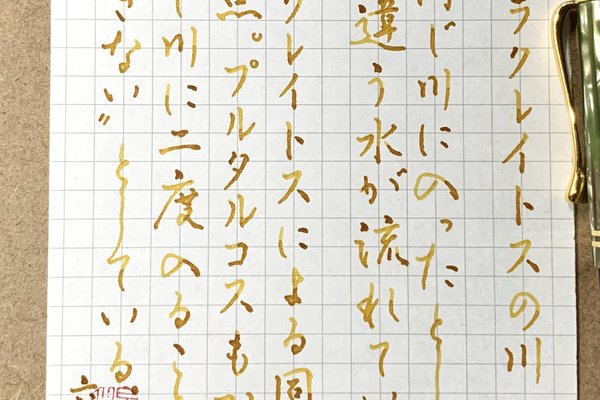 ラクレイトスの川
じ川に入ったとし
違う水が流れて
クレイトスによる同
。プルタルコスも
川に二度入ること
きない” としている